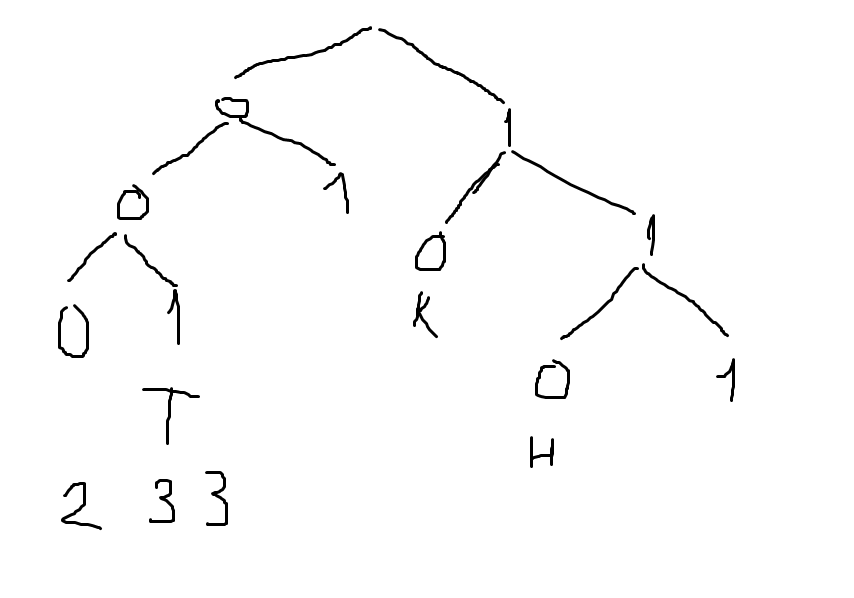 0 1
0 1 0 1
0 1 K 0 1
T H
2 3 3